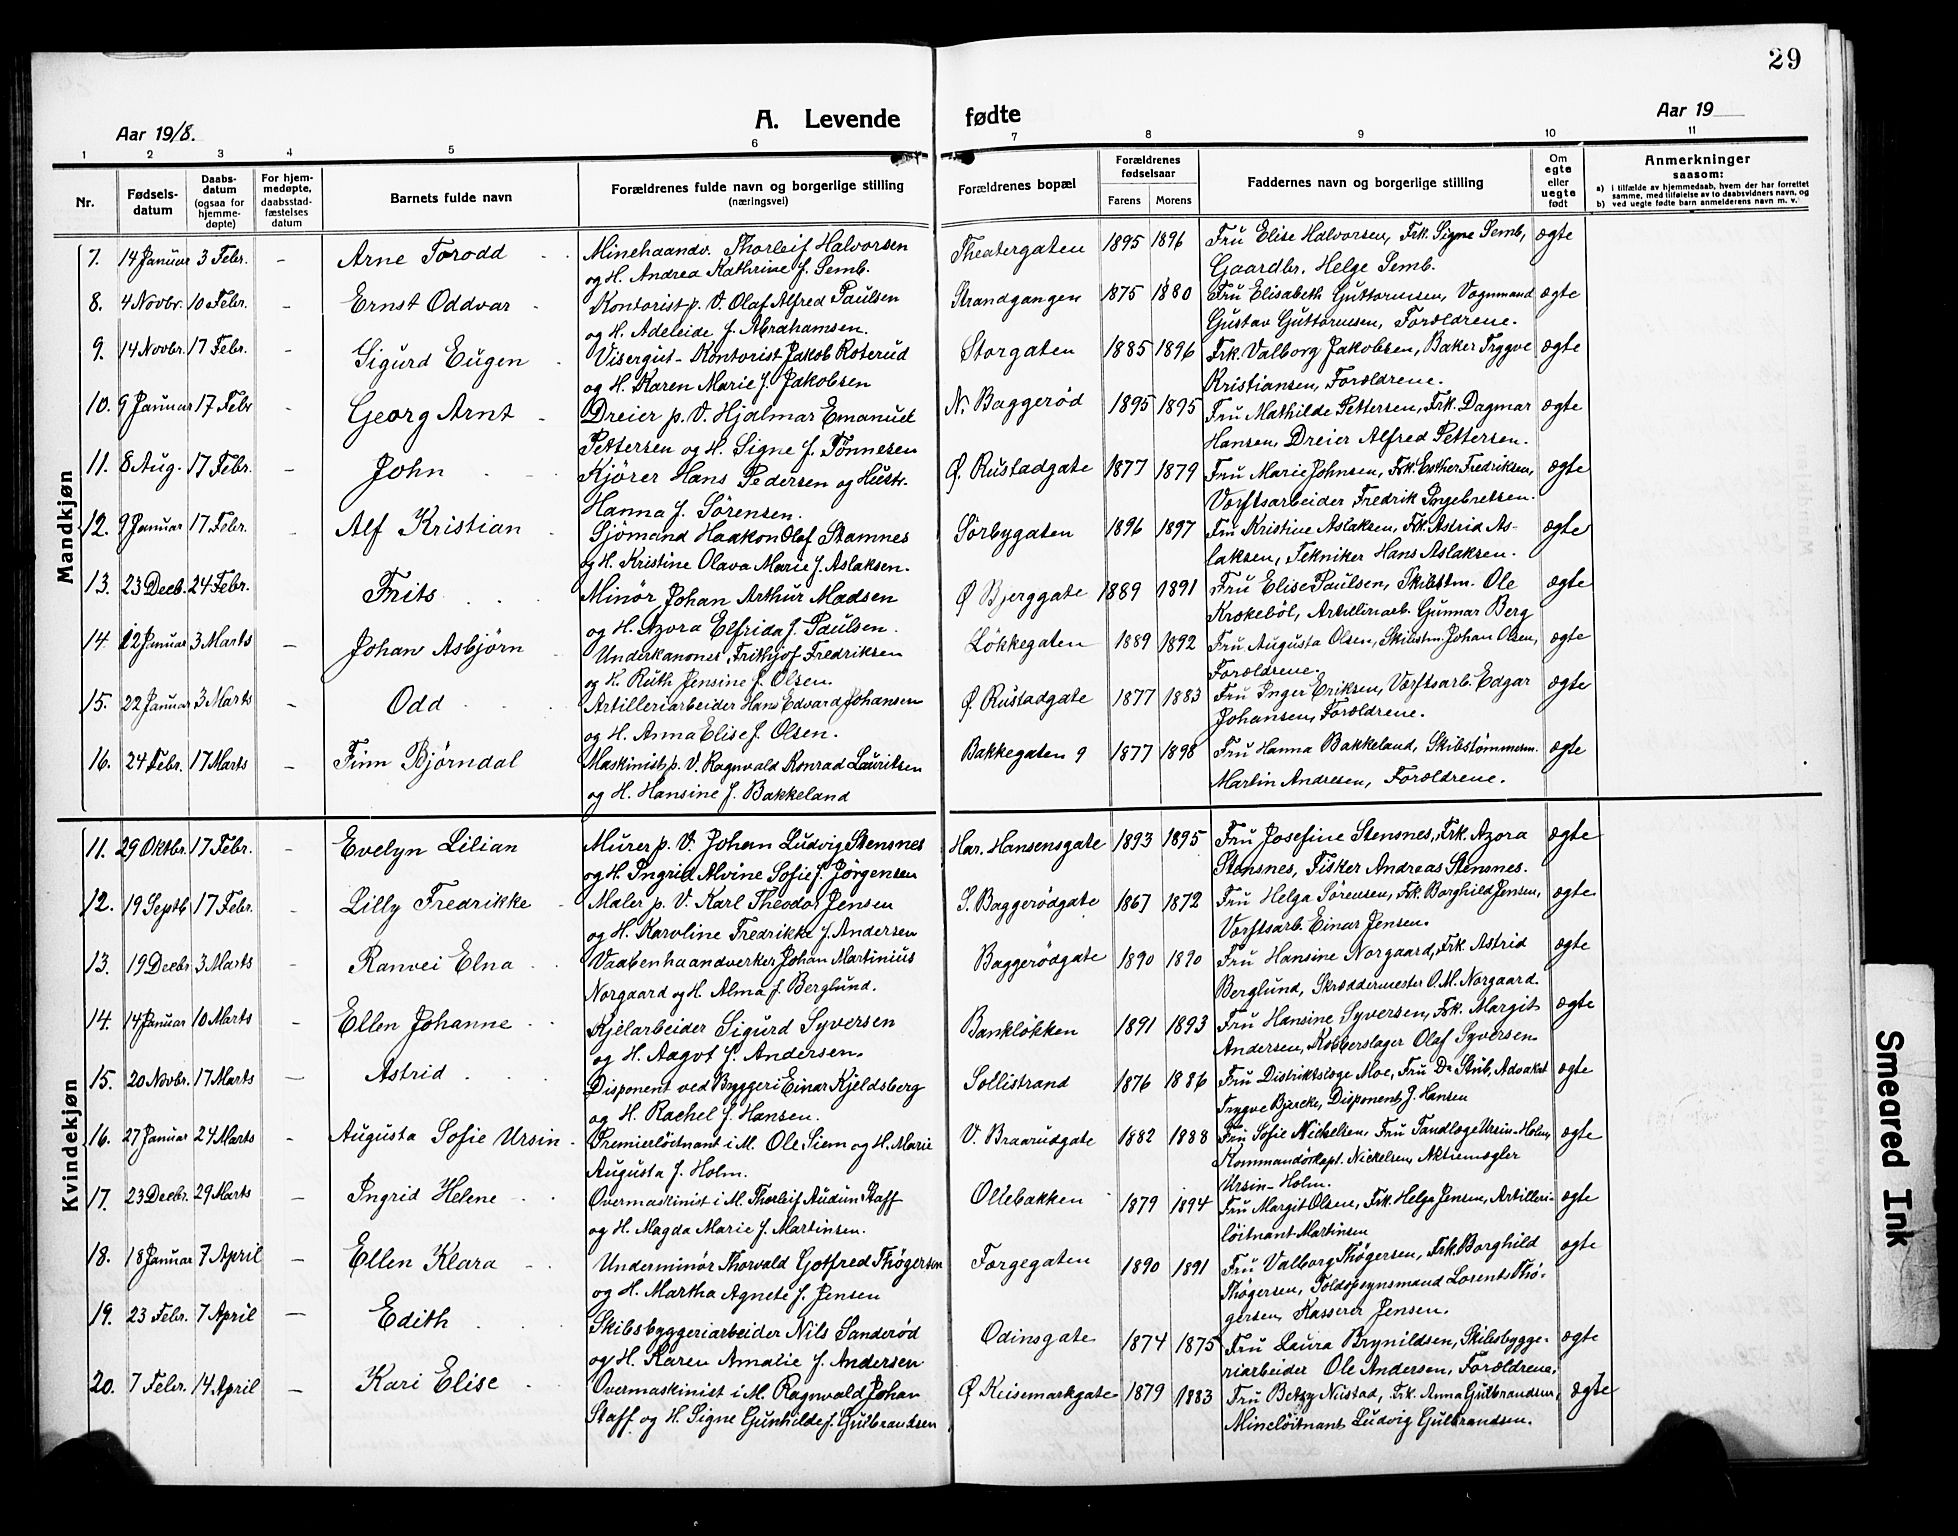 29
Aar 1918.
A. Levende fødte
Aar 19
1 2 3 4 5 6 7 8 9 10 11
Nr.
Fødsels-
datum
Daabs-
datum
(ogsaa for
hjemme-
døpte)
For hjem-
medøpte,
daabsstad-
fæstelses
datum
Barnets fulde navn
Forældrenes fulde navn og borgerlige stilling
(næringsvei)
Forældrenes bopæl
Forældrenes
fødselsaar
Farens Morens
Faddernes navn og borgerlige stilling
Om
egte
eller
uegte
født
Anmerkninger
saasom:
a) i tilfælde av hjemmedaab, hvem der har forrettet
samme, med tilføielse av to daabsvidners navn, og
b) ved uegte fødte barn anmelderens navn m. v.
Mandkjøn
7. 14 Januar 3 Febr. - Arne Torodd Minehaandv. Thorleif Halvorsen Theatergaten 1895 1896 Fru Elise Halvorsen, Frk. Signe Semb, ægte
og H. Andrea Kathrine f. Semb. Gaardbr. Helge Semb.
8. 4 Novbr. 10 Febr. - Ernst Oddvar Kontorist p. V. Olaf Alfred Paulsen Strandgangen 1875 1880 Fru Elisabeth Guttormsen, Vognmand ægte
og H. Adeleide f. Abrahamsen. Gustav Guttormsen, Forældrene.
9. 14 Novbr. 17 Febr. - Sigurd Eugen Visergut - Kontorist Jakob Roterud Storgaten 1885 1896 Frk. Valborg Jakobsen, Baker Trygve ægte
og H. Karen Marie f. Jakobsen Kristiansen, Forældrene.
10. 9 Januar 17 Febr - Georg Arnt Dreier p. V. Hjalmar Emanuel N. Baggerød 1895 1895 Fru Mathilde Pettersen, Frk. Dagmar ægte
Pettersen og H. Signe f. Tønnesen Hansen, Dreier Alfred Pettersen.
11. 8 Aug. 17 Febr. - John Kjører Hans Pedersen og Hustr. Ø. Rustadgate 1877 1879 Fru Marie Johnsen, Frk. Esther Fredriksen, ægte
Hanna f. Sørensen. Værftsarbeider Fredrik Ingebretsen.
12. 9 Januar 17 Febr. - Alf Kristian Sjømand Haakon Olaf Stamnes Sørbygaten 1896 1897 Fru Kristine Aslaksen, Frk. Astrid As- ægte
og H. Kristine Olava Marie f. Aslaksen. laksen, Tekniker Hans Aslaksen.
13. 23 Decb. 24 Febr. Frits Minør Johan Arthur Madsen Ø Bjerggate 1889 1891 Fru Elise Paulsen, Skibstm. Ole ægte
og H. Azora Elfrida f. Paulsen. Krokebøl, Artilleriarb. Gunnar Berg
14 12 Januar 3 Marts - Johan Asbjørn Underkanoner Frithjof Fredriksen Løkkegaten 1889 1892 Fru Augusta Olsen, Skibstm. Johan Olsen, ægte
og H. Ruth Jensine f. Olsen. Forældrene.
15. 22 Januar 3 Marts - Odd Artilleriarbeider Hans Edvard Johansen Ø. Rustadgate 1877 1883 Fru Inger Eriksen, Værftsarb. Edgar ægte
og H. Anna Elise f. Olsen. Johansen, Forældrene.
16. 24 Febr. 17 Marts - Finn Bjørndal Maskinist p. V. Ragnvald Konrad Lauritsen Bakkegaten 9 1877 1898 Fru Hanna Bakkeland, Skibstømmerm. ægte
og H. Hansine f. Bakkeland Martin Andresen, Forældrene.
Kvindekjøn
11. 29 Oktbr. 17 Febr. - Evelyn Lilian Murer p. V. Johan Ludvig Stensnes Har. Hansensgate 1893 1895 Fru Josefine Stensnes, Frk. Azora ægte
og H. Ingrid Alvine Sofie f. Jørgensen Stensnes, Fisker Andreas Stensnes.
12. 19 Septb. 17 Febr. - Lilly Fredrikke Maler p. V. Karl Theodor Jensen S. Baggerødgate 1867 1872 Fru Helga Sørensen, Frk. Borghild Jensen, ægte
og H. Karoline Fredrikke f. Andersen Værftsarb. Einar Jensen.
13. 19 Decbr. 3 Marts - Ranvei Elna Vaabenhaandverker Johan Martinius Baggerødgate 1890 1890 Fru Hansine Norgaard, Frk. Astrid ægte
Norgaard og H. Alma f. Berglund. Berglund, Skræddermester O. M. Norgaard.
14. 14 Januar 10 Marts - Ellen Johanne Kjelarbeider Sigurd Syversen Bankløkken 1891 1893 Fru Hansine Syversen, Frk. Margit ægte
og H. Aagot f. Andersen. Andersen, Kobberslager Olaf Syversen.
15. 20 Novbr. 17 Marts - Astrid Disponent ved Byggeri Einar Kjeldsberg Sollistrand 1876 1886 Fru Distriktslæge Moe, Fru Dr. Stub, Advokat ægte
og H. Rachel f. Hansen. Trygve Bjercke, Disponent J. Hansen
16. 27 Januar 24 Marts - Augusta Sofie Ursin Premierløitnant i M. Ole Siem og H. Marie V. Braarudgate 1882 1888 Fru Sofie Nickelsen, Fru Tandlæge Ursin-Holm, ægte
Augusta f. Holm. Kommandørkapt. Nickelsen, Aktiemægler
Ursin-Holm.
17. 23 Decbr. 29 Marts - Ingrid Helene Overmaskinist i M. Thorleif Audun Staff Ollebakken 1879 1894 Fru Margit Olsen, Frk. Helga Jensen, Artilleri- ægte
og H. Magda Marie f. Martinsen. løitnant Martinsen
18. 18 Januar 7 April - Ellen Klara Underminør Thorvald Gotfred Thøgersen Færgegaten 1890 1891 Fru Valborg Thøgersen, Frk. Borghild ægte
og H. Martha Agnete f. Jensen Thøgersen, Toldopsynsmand Lorents Thø-
gersen, Kasserer Jensen.
19. 23 Febr. 7 April - Edith Skibsbyggeriarbeider Nils Sanderød Odinsgate 1874 1875 Fru Laura Brynildsen, Skibsbygge- ægte
og H. Karen Amalie f. Andersen riarbeider Ole Andersen, Forældrene.
20. 7 Febr. 14 April - Kari Elise Overmaskinist i M. Ragnvald Johan Ø Keisemarkgate 1879 1883 Fru Betzy Nistad, Frk. Anna Gulbrandsen, ægte
Staff og H. Signe Gunhilde f. Gulbrandsen Mineløitnant Ludvig Gulbrandsen.
Smeared Ink